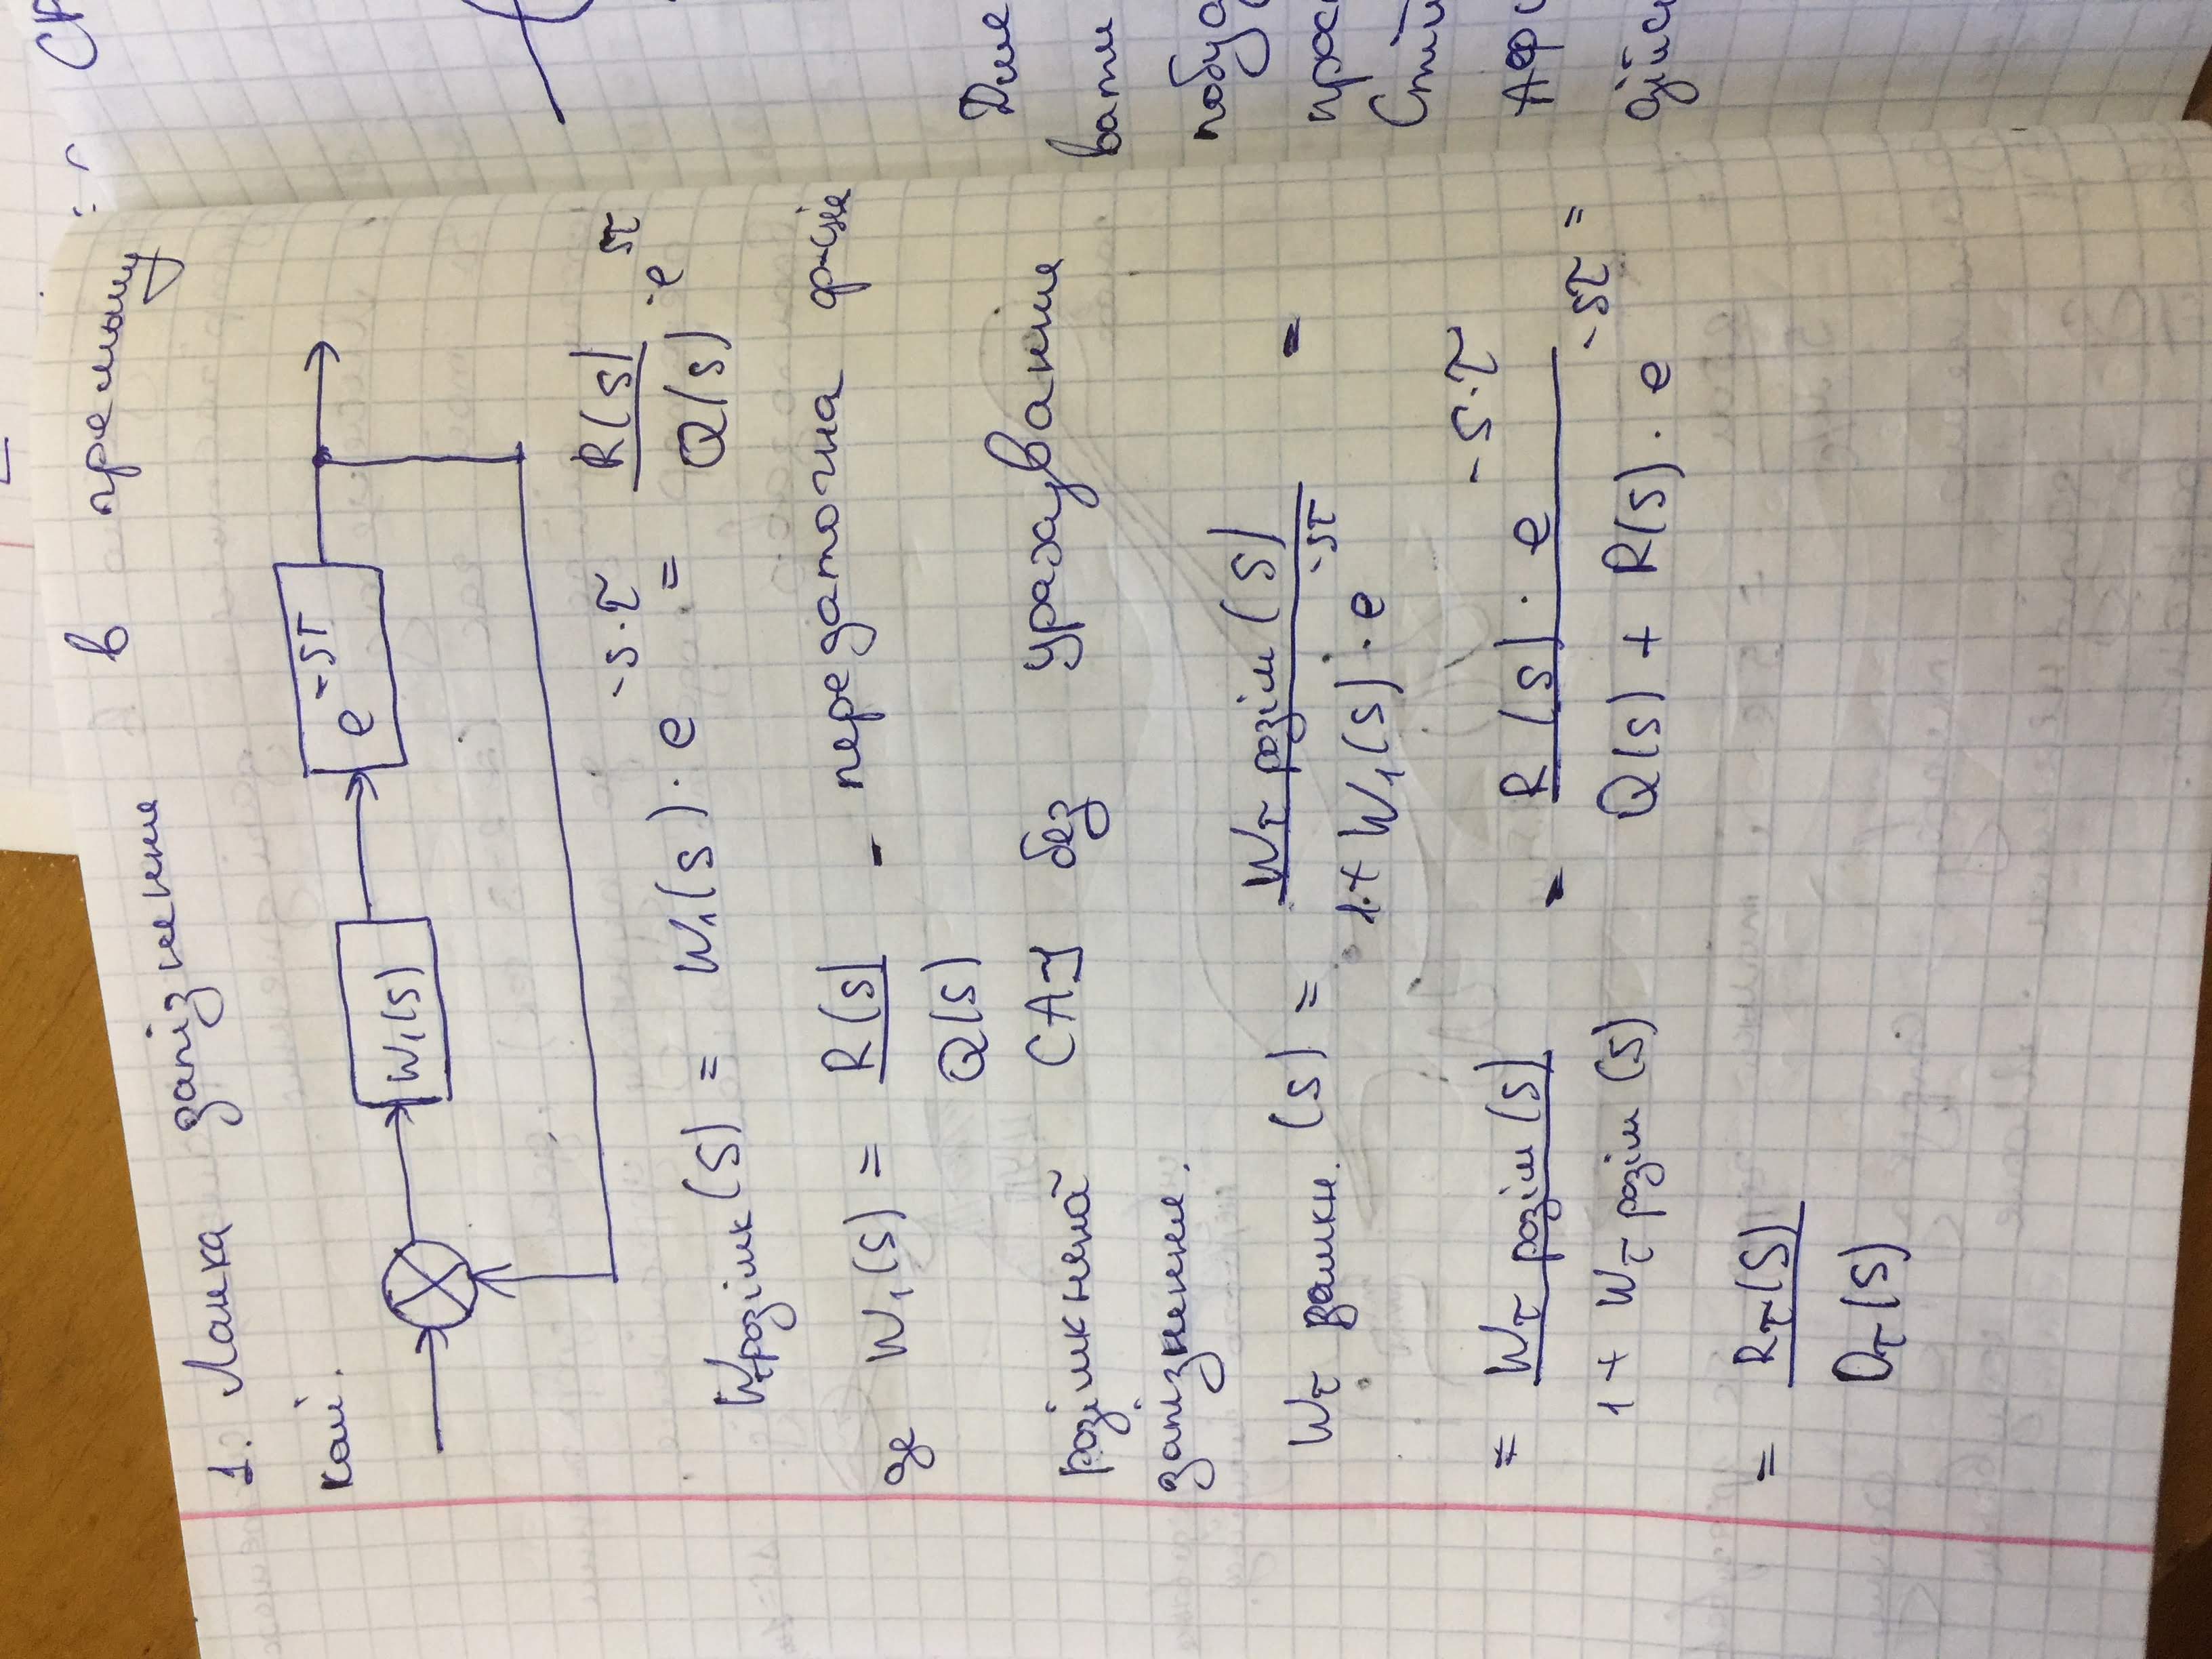 1. Ланка запізнення в прямому
колі.
W₁(s)
e^{-sτ}
W_{τ розімк}(s) = W₁(s) · e^{-s·τ} = R(s)/Q(s) · e^{sτ}
де W₁(s) = R(s)/Q(s) - передаточна ф-ція
розімкненої САУ без урахування
запізнення.
W_{τ замкн.}(s) = W_{τ розім}(s) / 1 + W₁(s) · e^{-sτ} =
= W_{τ розім}(s) / 1 + W_{τ розім}(s) = R(s) · e^{-s·τ} / Q(s) + R(s) · e^{-sτ} =
= R_τ(s) / D_τ(s)
вати
АФ